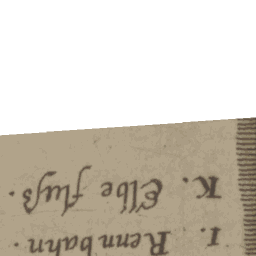 I. Rennbahn.
K. Elbe fluß.